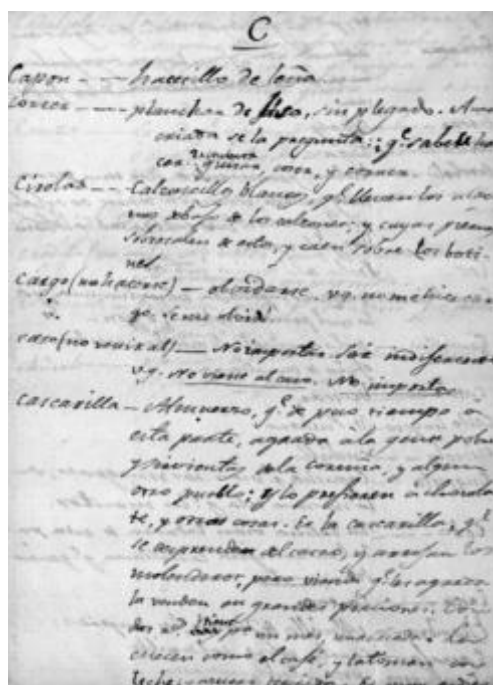 C
Capon - - hacecillo de leña
- - planchar de liso, sin plegado. A una
criada se la pregunta: q.e sabe
coser, y
Cirolas - - Calzoncillos blancos, q.e llevan los
debajo de los calzones; y cuyas
sobresalen de estos, y caen sobre los boti-
nes.
cargo (no hacerse) — olvidarse. v.g. no me hice car-
go. Se me olvidó.
caso (no venir al) — No importar. Ser indiferente
v.g. No viene al caso. No importa
cascarilla - Almuerzo, q.e de poco tiempo a
esta parte, agrada à la gente pobre
y sirvientas de la Coruña, y algun
otro pueblo; y lo prefieren à chocola-
te, y otras cosas. Es la cascarilla, q.e
se desprende del cacao, y arrojan los
molenderos, pero viendo q.e les agrada
la venden en grandes porciones.
por un mes,
cuecen como el café, y la toman con
leche